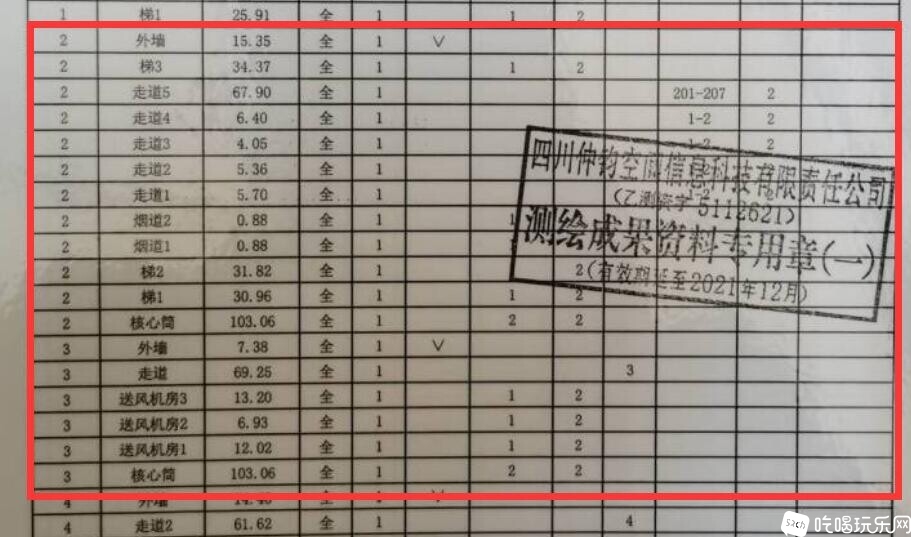 1 梯1 25.91 全 1 1 2
2 外墙 15.35 全 1 ∨
2 梯3 34.37 全 1 1 2
2 走道5 67.90 全 1 201-207 2
2 走道4 6.40 全 1 1-2 2
2 走道3 4.05 全 1 1-2 2
2 走道2 5.36 全 1
2 走道1 5.70 全 1 1-2
2 烟道2 0.88 全 1 1
2 烟道1 0.88 全 1
2 梯2 31.82 全 1 2
2 梯1 30.96 全 1 1 2
2 核心筒 103.06 全 1 2 2
3 外墙 7.38 全 1 ∨
3 走道 69.25 全 1 3
3 送风机房3 13.20 全 1 1 2
3 送风机房2 6.93 全 1 1 2
3 送风机房1 12.02 全 1 1 2
3 核心筒 103.06 全 1 2 2
4 外墙 14.40 全 1 ∨
4 走道2 61.62 全 1 4
四川仲钧空间信息科技有限责任公司
(乙测资字 5112621)
测绘成果资料专用章(一)
(有效期延至2021年12月)
52ch 吃喝玩乐网